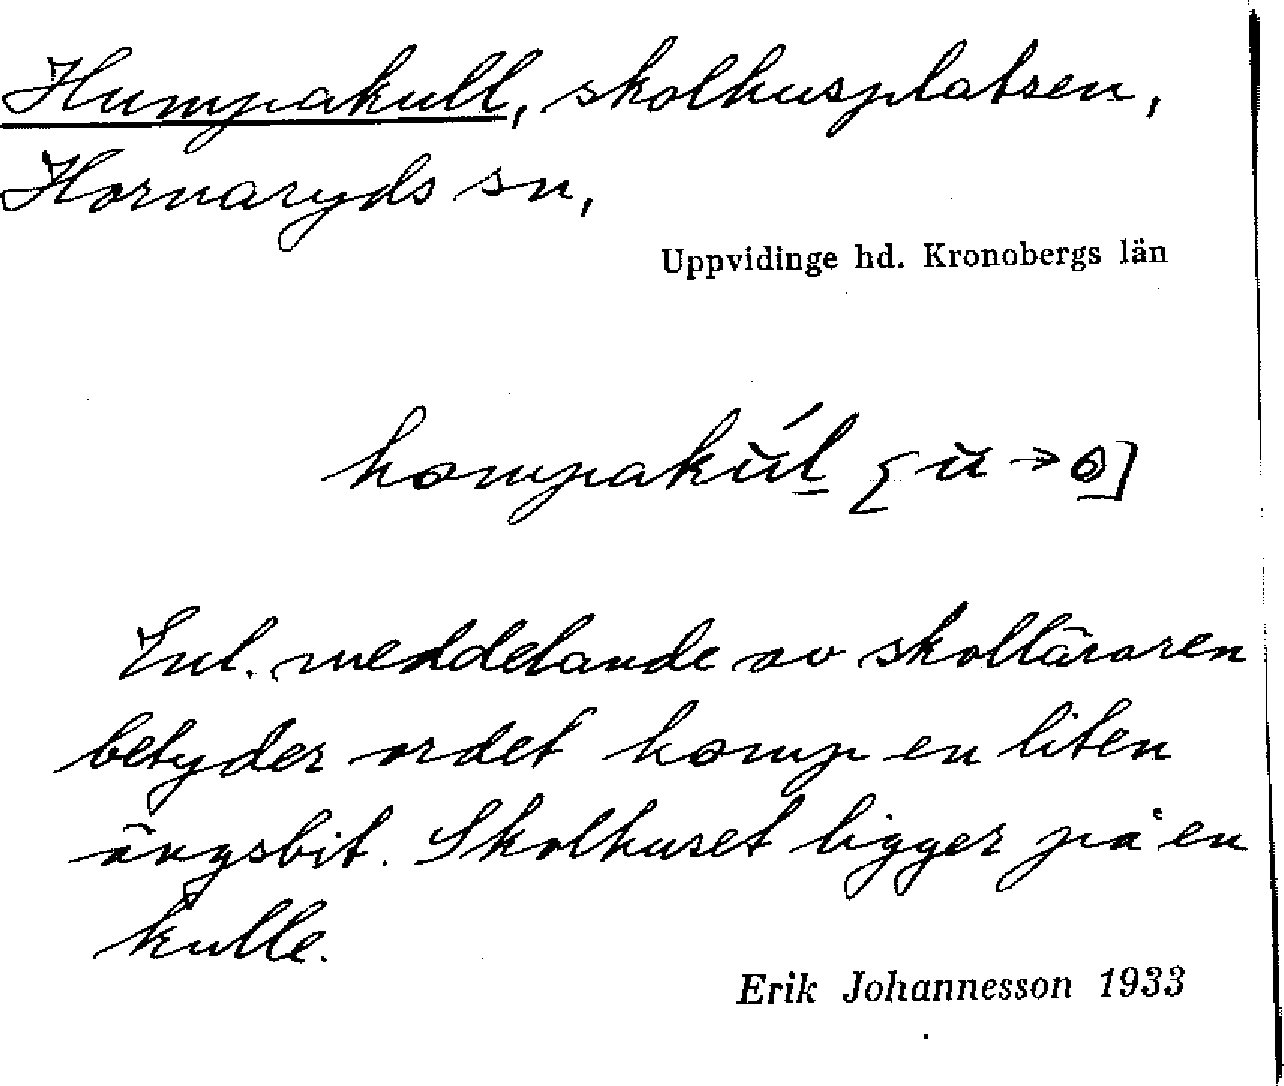 Humpakull, skolhusplatsen,
Hornaryds sn,
Uppvidinge hd. Kronobergs län
hompakŭ́l [ŭ → ɵ]
Enl. meddelande av skolläraren
betyder ordet homp en liten
ängsbit. Skolhuset ligger på en
kulle.
Erik Johannesson 1933